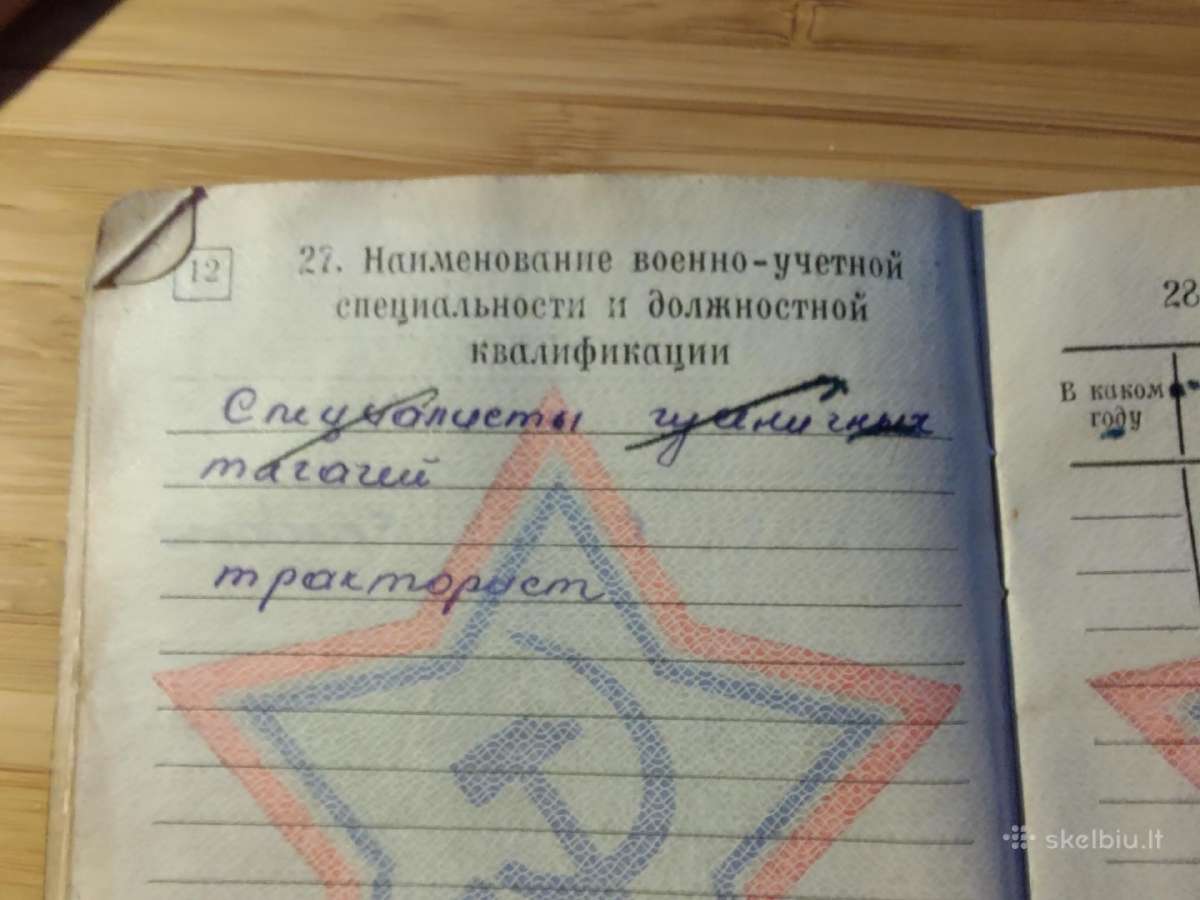 12
27. Наименование военно-учетной
специальности и должностной
квалификации
Специалисты гусеничных
тягачей
тракторист
28
В каком
году
skelbiu.lt